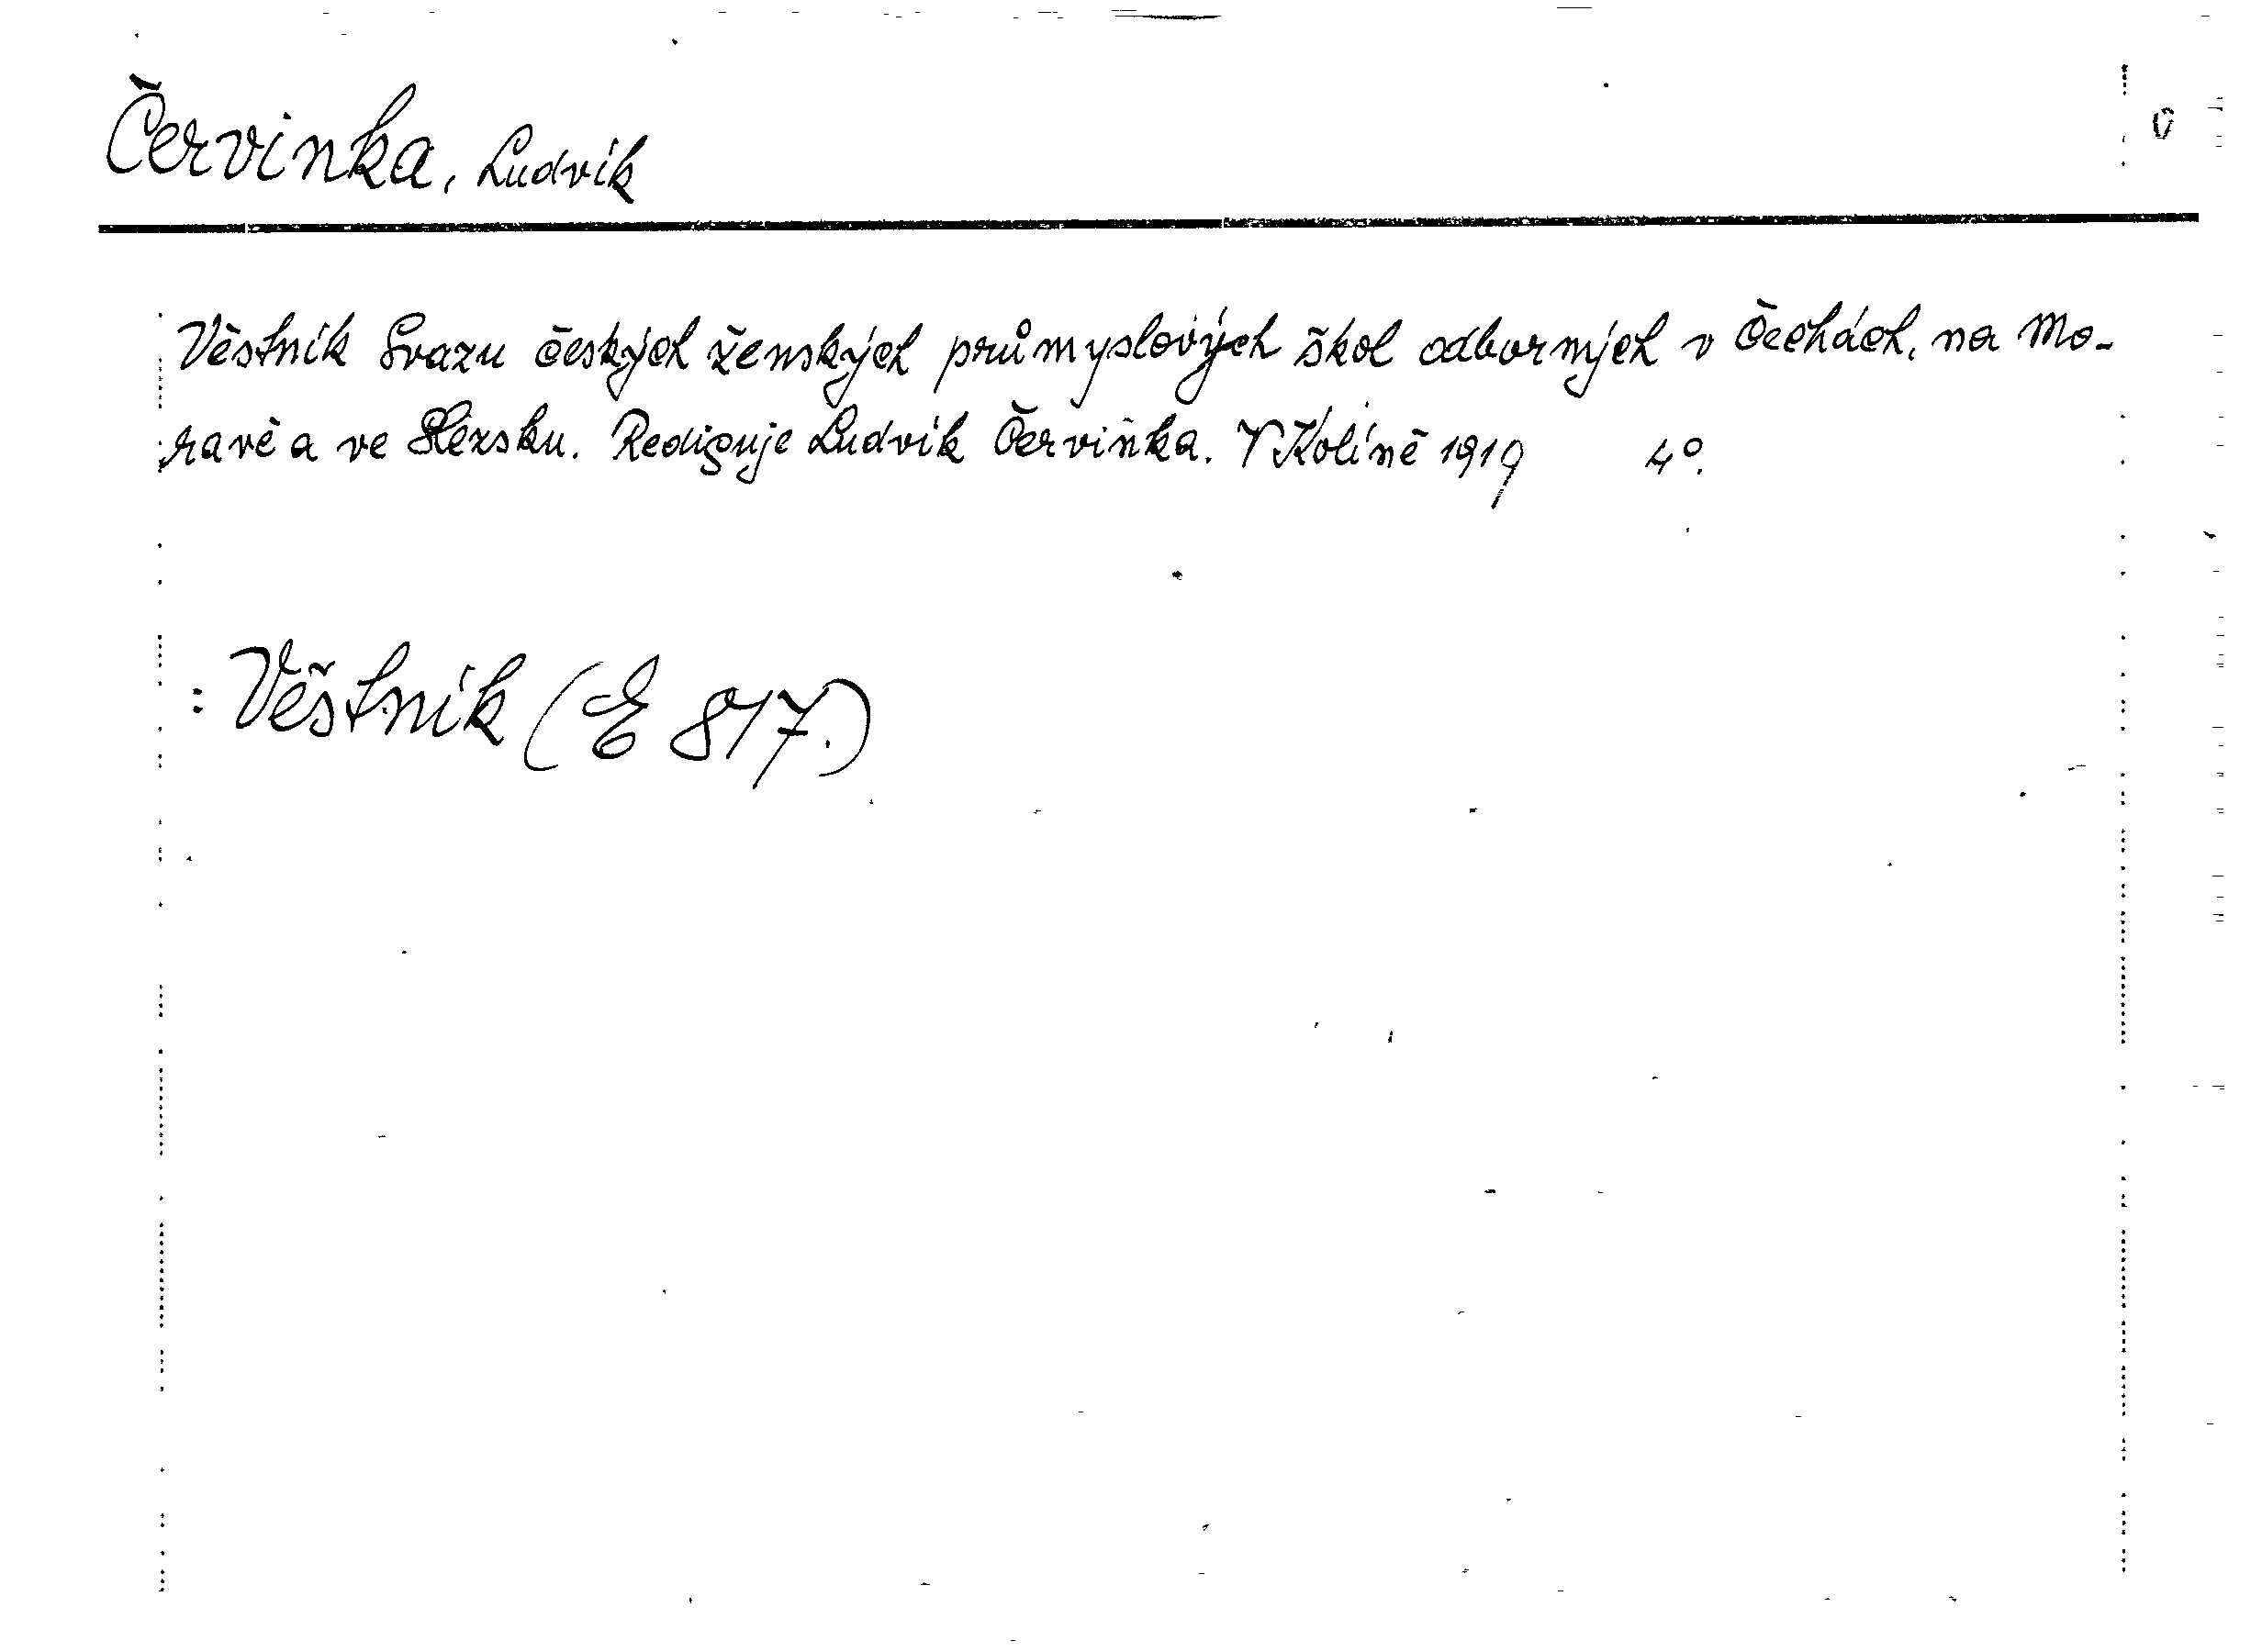 Červinka, Ludvík
Věstník Svazu českých ženských průmyslových škol odborných v Čechách, na Mo-
ravě a ve Slezsku. Rediguje Ludvík Červinka. V Kolíně 1919 4°.
: Věstník (E 817.)